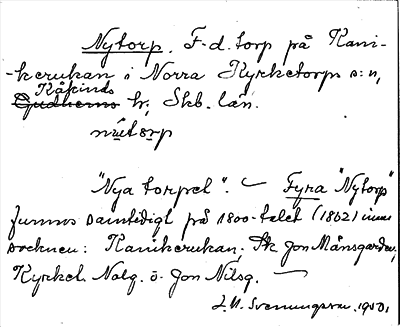 Nytorp. F.d. torp på Kani-
-kerukan i Norra Kyrketorps s:n,
Kåkinds
Gudhems hr, Skb. län.
nútorp
"Nya torpet". — Fyra "Nytorp"
funnos samtidigt på 1800-talet (1862) inom
socknen: Kanikerukan, St. Jon Månsgården,
Kyrkel. Nolg. o. Jon Nilsg. —
Svenungsson. 1950.